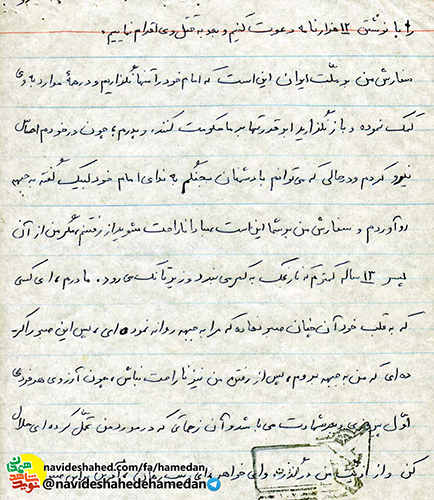 را با نوشتن ۱۲ هزار نامه دعوت کنیم و بعد به قتل وی اقدام نماییم.
سفارش من به ملّت ایران این است که امام خود را تنها نگذاریم و در همهٔ موارد به وی
کمک نموده و باز نگذارید ابرقدرتها بر ما حکومت کنند. و پدرم، چون در خودم احساس
نیرو کردم و در حالی که می‌توانم با دشمنان بجنگم به ندای امام خود لبیک گفته به جبهه
رو آوردم و سفارش من به شما این است، مبادا ناراحت شوید از رفتنم، مگر من از آن
پسر ۱۳ ساله کمترم که نارنجک به کمر می‌بندد و زیر تانک می‌رود. مادرم، ای کسی
که به قلب خود آن چنان صبر نهاده که مرا به جبهه روانه نموده‌ای، پس این صبر را کرـ
ده‌ای که من به جبهه بروم، پس از رفتن من نیز ناراحت نباش، چون آرزوی هر فردی
اوّل پیروزی و بعد شهادت می‌باشد و آن زحماتی که در مورد من تحمّل کرده‌ای حلال
کن و از من درگذر و ای خواهر
navideshahed.com/fa/hamedan
@navideshahedehamedan